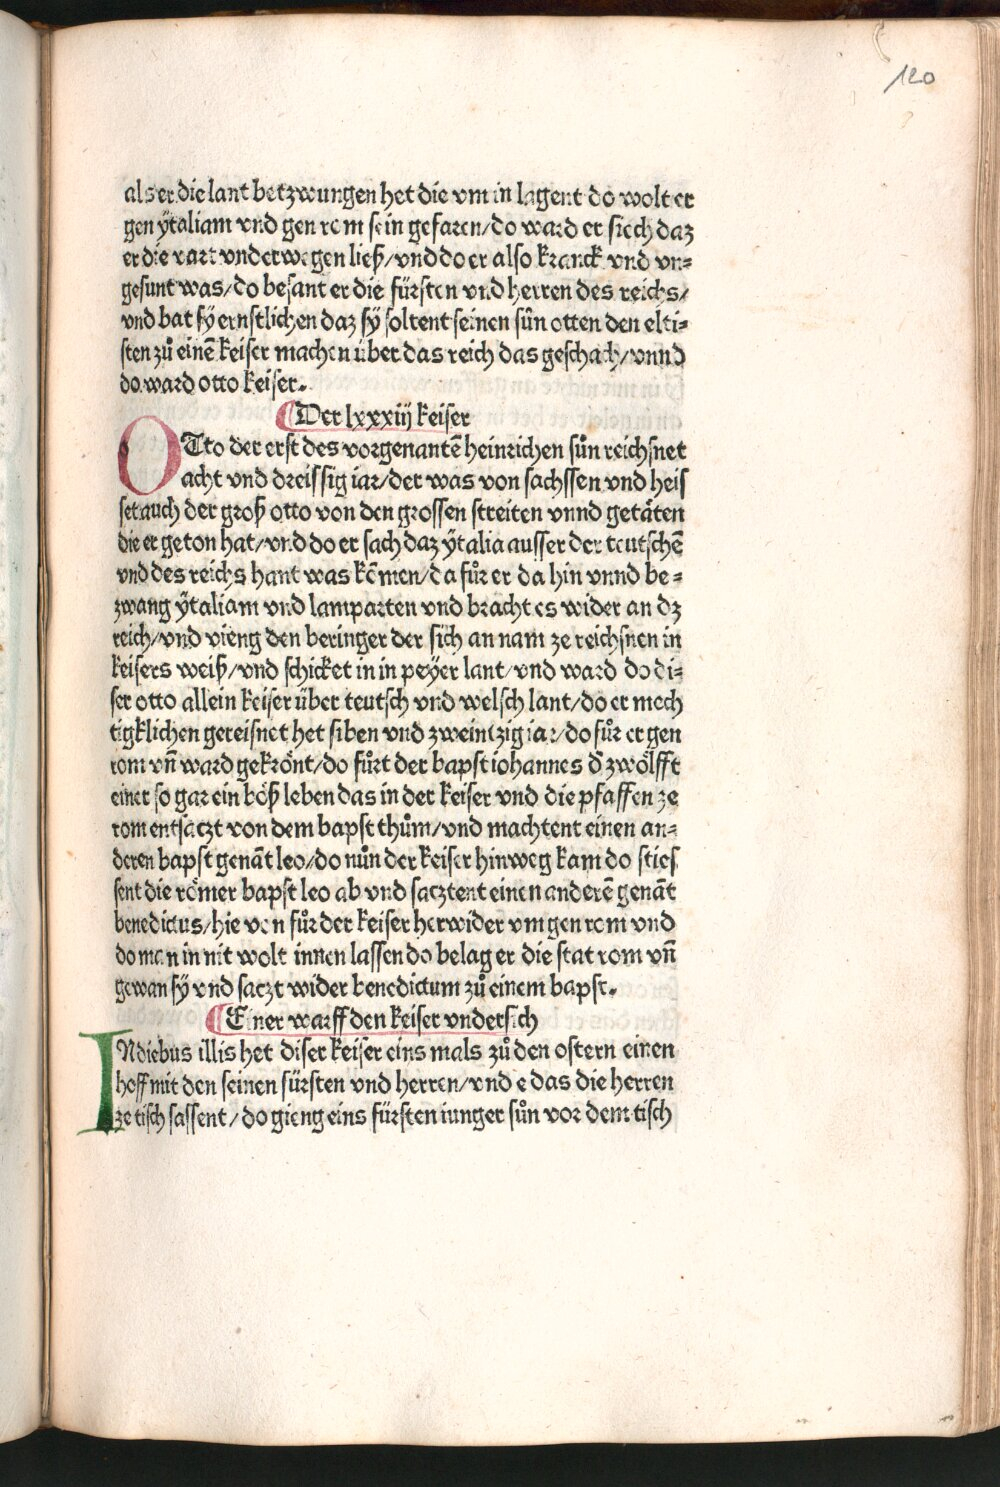 120
als er die lant betzwungen het die vm in lagent do wolt er
gen ÿtaliam vnd gen rom sein gefaren/do ward er siech daz
er die vart vnderwegen ließ/vnd do er also kranck vnd vn⸗
gesunt was/do besant er die fürsten vnd herren des reichs/
vnd bat sÿ ernstlichen daz sÿ soltent seinen sůn otten den elti⸗
sten zů einē keiser machen über das reich das geschach/vnnd
do ward otto keiser.
¶Der lxxxiij keiser
OTto der erst des vorgenantē heinrichen sůn reichsnet
acht vnd dreissig iar/der was von sachssen vnd heis
set auch der groß otto von den grossen streiten vnnd getäten
die er geton hat/vnd do er sach daz ÿtalia ausser der teutschē
vnd des reichs hant was kōmen/da fůr er da hin vnnd be⸗
zwang ÿtaliam vnd lamparten vnd bracht es wider an dz
reich/vnd vieng den beringer der sich an nam ze reichsnen in
keisers weiß/vnd schicket in in peÿer lant/vnd ward do di⸗
ser otto allein keiser über teutsch vnd welsch lant/do er mech
tigklichen gereisnet het siben vnd zweintzig iar/do fůr er gen
rom vn̄ ward gekrönt/do fůrt der bapst iohannes d̓ zwölfft
einer so gar ein böß leben das in der keiser vnd die pfaffen ze
rom entsaczt von dem bapst thům/vnd machtent einen an⸗
deren bapst genāt leo/do nůn der keiser hinweg kam do sties
sent die römer bapst leo ab vnd sacztent einen anderē genāt
benedictus/hie von fůr der keiser herwider vm gen rom vnd
do man in nit wolt innen lassen do belag er die stat rom vn̄
gewan sÿ vnd saczt wider benedictum zů einem bapst.
¶Einer warff den keiser vndersich
INdiebus illis het diser keiser eins mals zů den ostern einen
hoff mit den seinen fürsten vnd herren/vnd e das die herren
ze tisch sassent/do gieng eins fürsten iunger sůn vor dem tisch